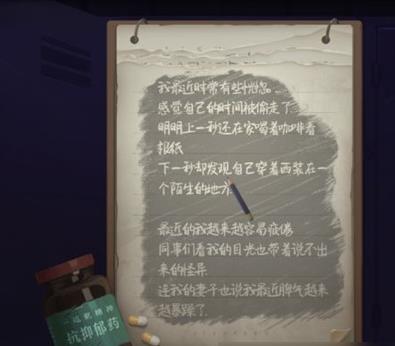 我最近时常有些恍惚。
感觉自己的时间被偷走了
明明上一秒还在家喝着咖啡看
报纸
下一秒却发现自己穿着西装在一
个陌生的地方
最近的我越来越容易疲倦
同事们看我的目光也带着说不出
来的怪异
连我的妻子也说我最近脾气越来
越暴躁了
抗抑郁药